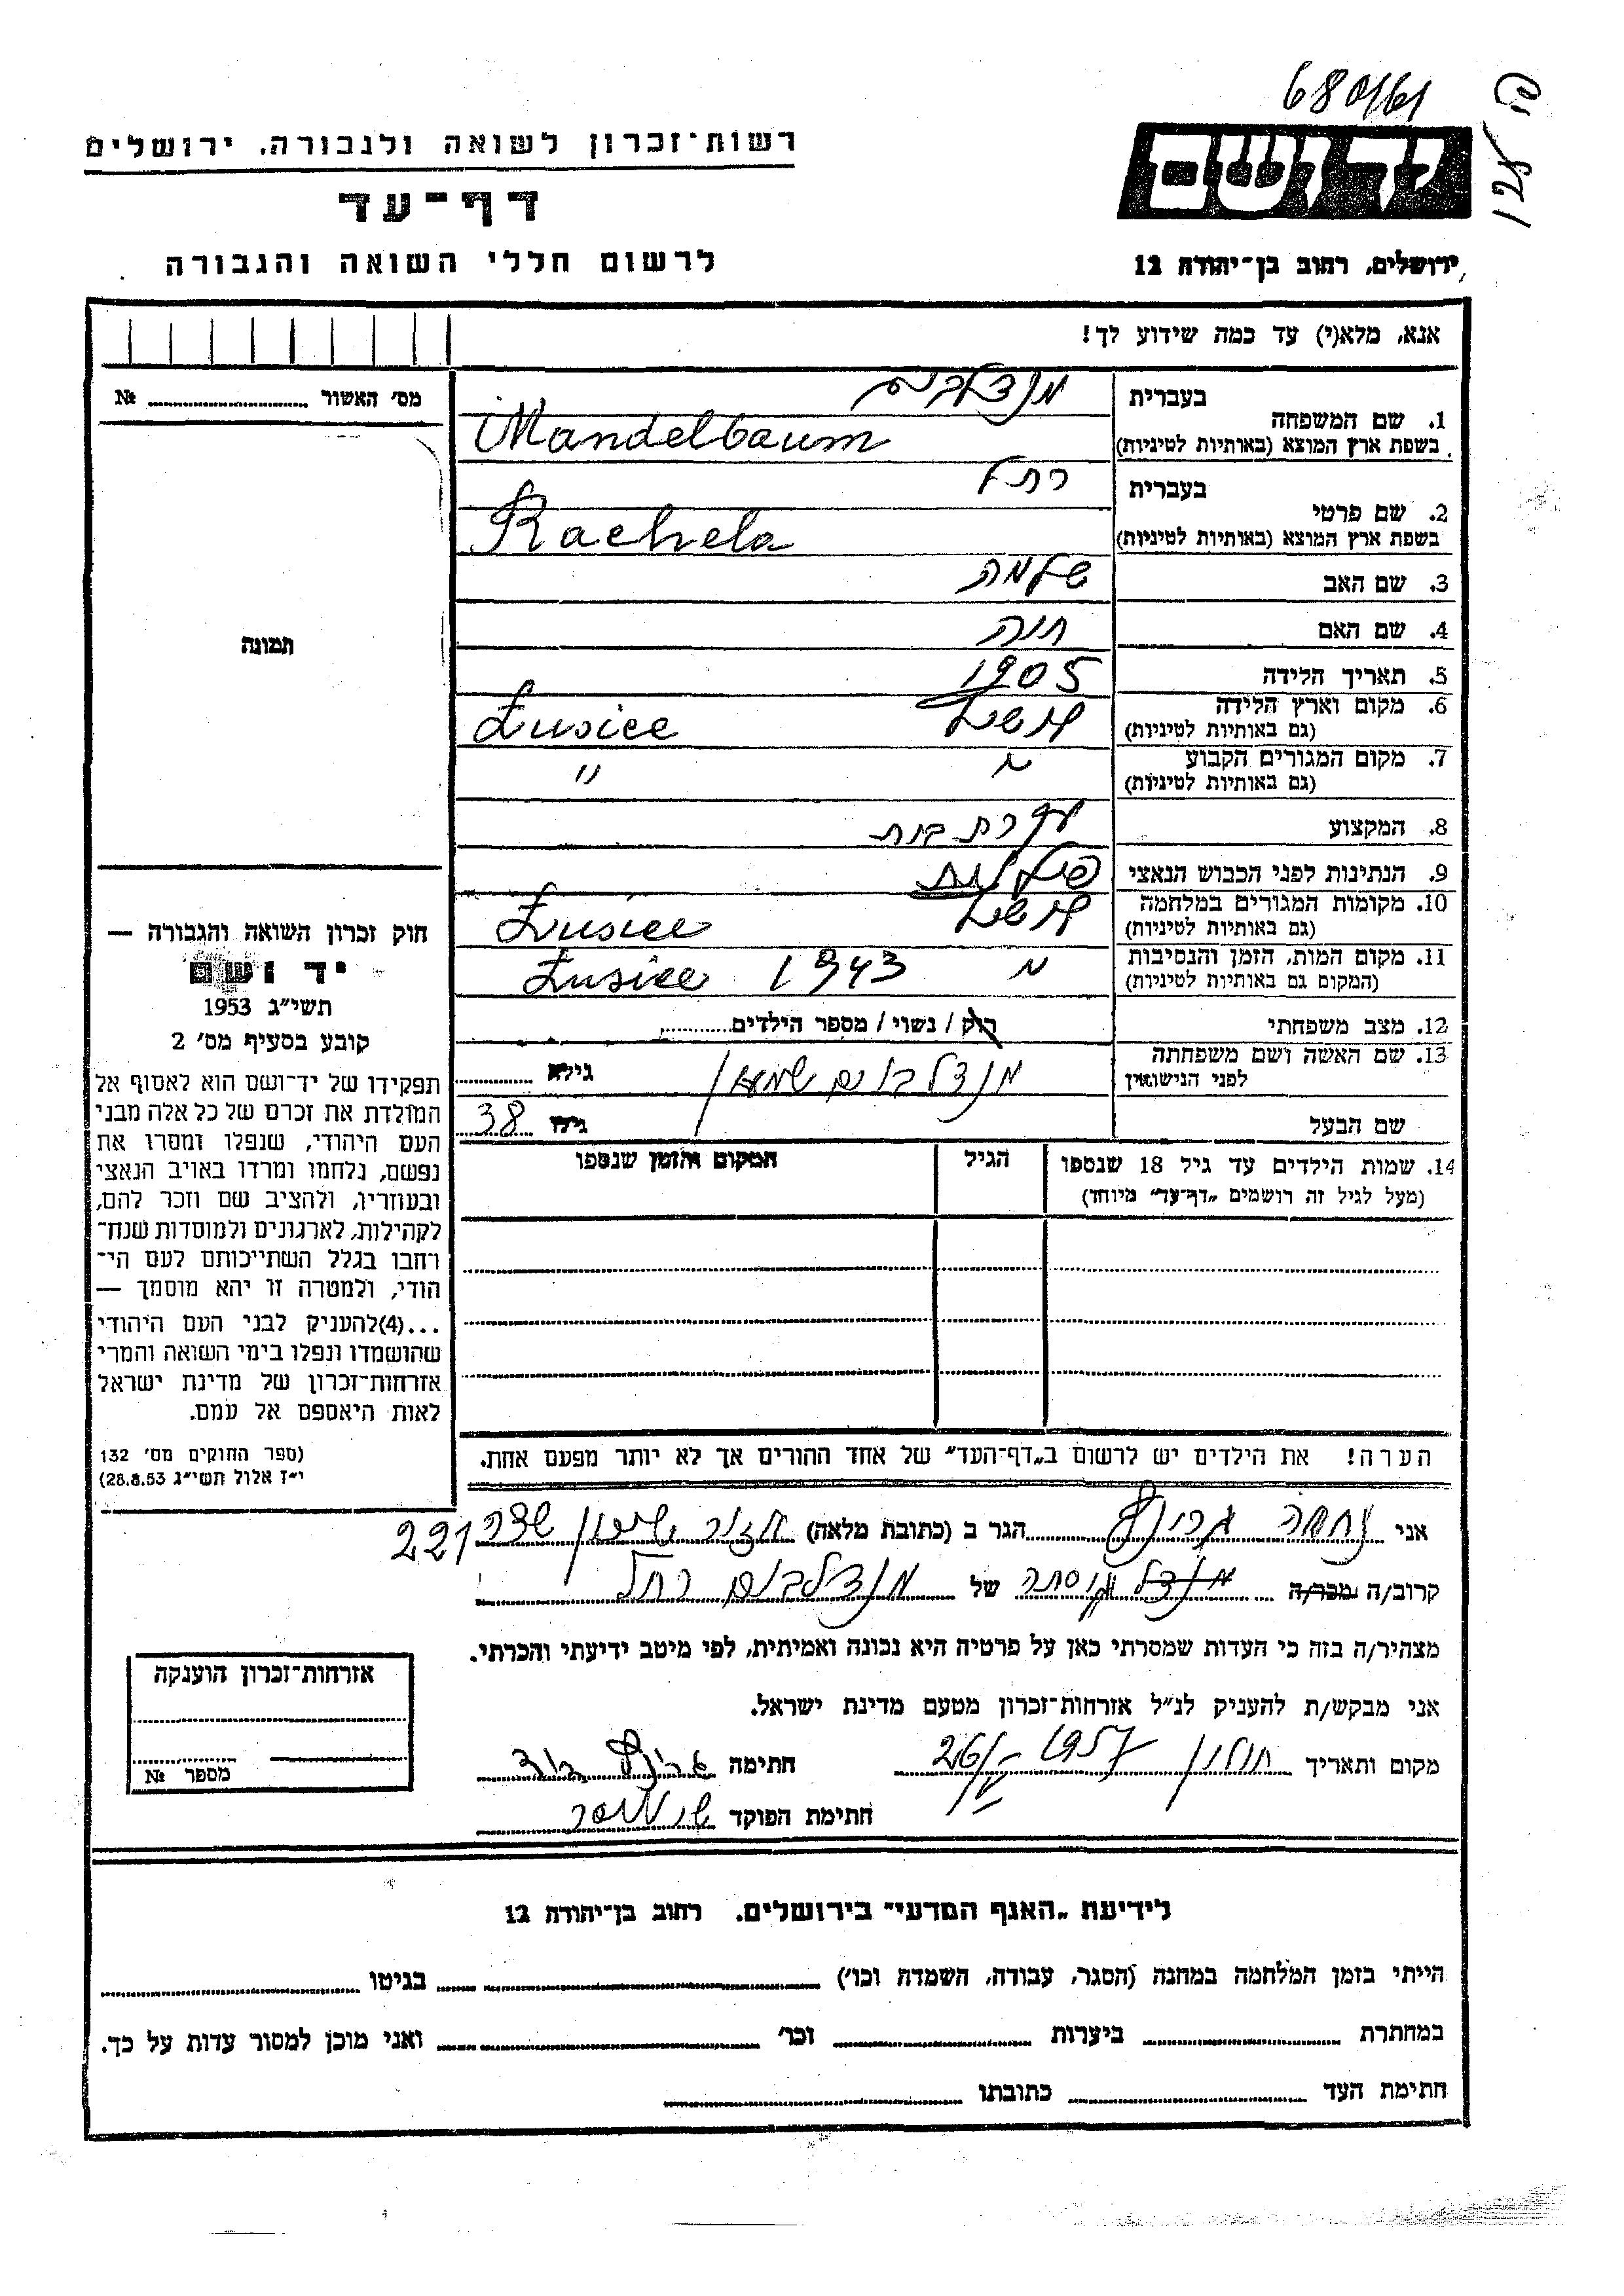 680/61
רשות־זכרון לשואה ולגבורה, ירושלים
דף־עד
לרשום חללי השואה והגבורה
יד ושם
ירושלים, רחוב בן־יהודה 12
אנא, מלא(י) עד כמה שידוע לך!
מס׳ האשור № 
תמונה
בעברית
1. שם המשפחה
בשפת ארץ המוצא (באותיות לטיניות)
מנדלבוים
Mandelbaum
בעברית
2. שם פרטי
בשפת ארץ המוצא (באותיות לטיניות)
רחל
Rachela
3. שם האב שלמה
4. שם האם חנה
5. תאריך הלידה 1905
6. מקום וארץ הלידה
(גם באותיות לטיניות)
Łusice
7. מקום המגורים הקבוע
(גם באותיות לטיניות)
"
8. המקצוע עקרת בית
9. הנתינות לפני הכבוש הנאצי פולנית
10. מקומות המגורים במלחמה
(גם באותיות לטיניות)
Łusice
11. מקום המות, הזמן והנסיבות
(המקום גם באותיות לטיניות)
Łusice 1943
12. מצב משפחתי רוק / נשוי / מספר הילדים
13. שם האשה ושם משפחתה
לפני הנישואין
מנדלבוים שמעון גילא
שם הבעל גילו 38
14. שמות הילדים עד גיל 18 שנספו
(מעל לגיל זה רושמים „דף־עד״ מיוחד)
הגיל
המקום והזמן שנספו
חוק זכרון השואה והגבורה —
יד ושם
תשי״ג 1953
קובע בסעיף מס׳ 2
תפקידו של יד־ושם הוא לאסוף אל
המולדת את זכרם של כל אלה מבני
העם היהודי, שנפלו ומסרו את
נפשם, נלחמו ומרדו באויב הנאצי
ובעוזריו, ולהציב שם וזכר להם,
לקהילות, לארגונים ולמוסדות שנח־
רחבו בגלל השתייכותם לעם הי־
הודי, ולמטרה זו יהא מוסמך —
...(4)להעניק לבני העם היהודי
שהושמדו ונפלו בימי השואה והמרי
אזרחות־זכרון של מדינת ישראל
לאות היאספם אל עמם.
(ספר החוקים מס׳ 132
י״ז אלול תשי״ג 28.8.53)
הערה! את הילדים יש לרשום ב„דף־העד״ של אחד ההורים אך לא יותר מפעם אחת.
אני נחמה הגר ב (כתובת מלאה) 221
קרוב/ה מכר/ה של מנדלבוים רחל
מצהיר/ה בזה כי העדות שמסרתי כאן על פרטיה היא נכונה ואמיתית, לפי מיטב ידיעתי והכרתי.
אני מבקש/ת להעניק לנ״ל אזרחות־זכרון מטעם מדינת ישראל.
מקום ותאריך חולון 1957 חתימה
חתימת הפוקד
אזרחות־זכרון הוענקה
מספר №
לידיעת „האגף המדעי״ בירושלים, רחוב בן־יהודה 12
הייתי בזמן המלחמה במחנה (הסגר, עבודה, השמדה וכו׳) בגיטו
במחתרת ביערות וכו׳ ואני מוכן למסור עדות על כך.
חתימת העד כתובתו